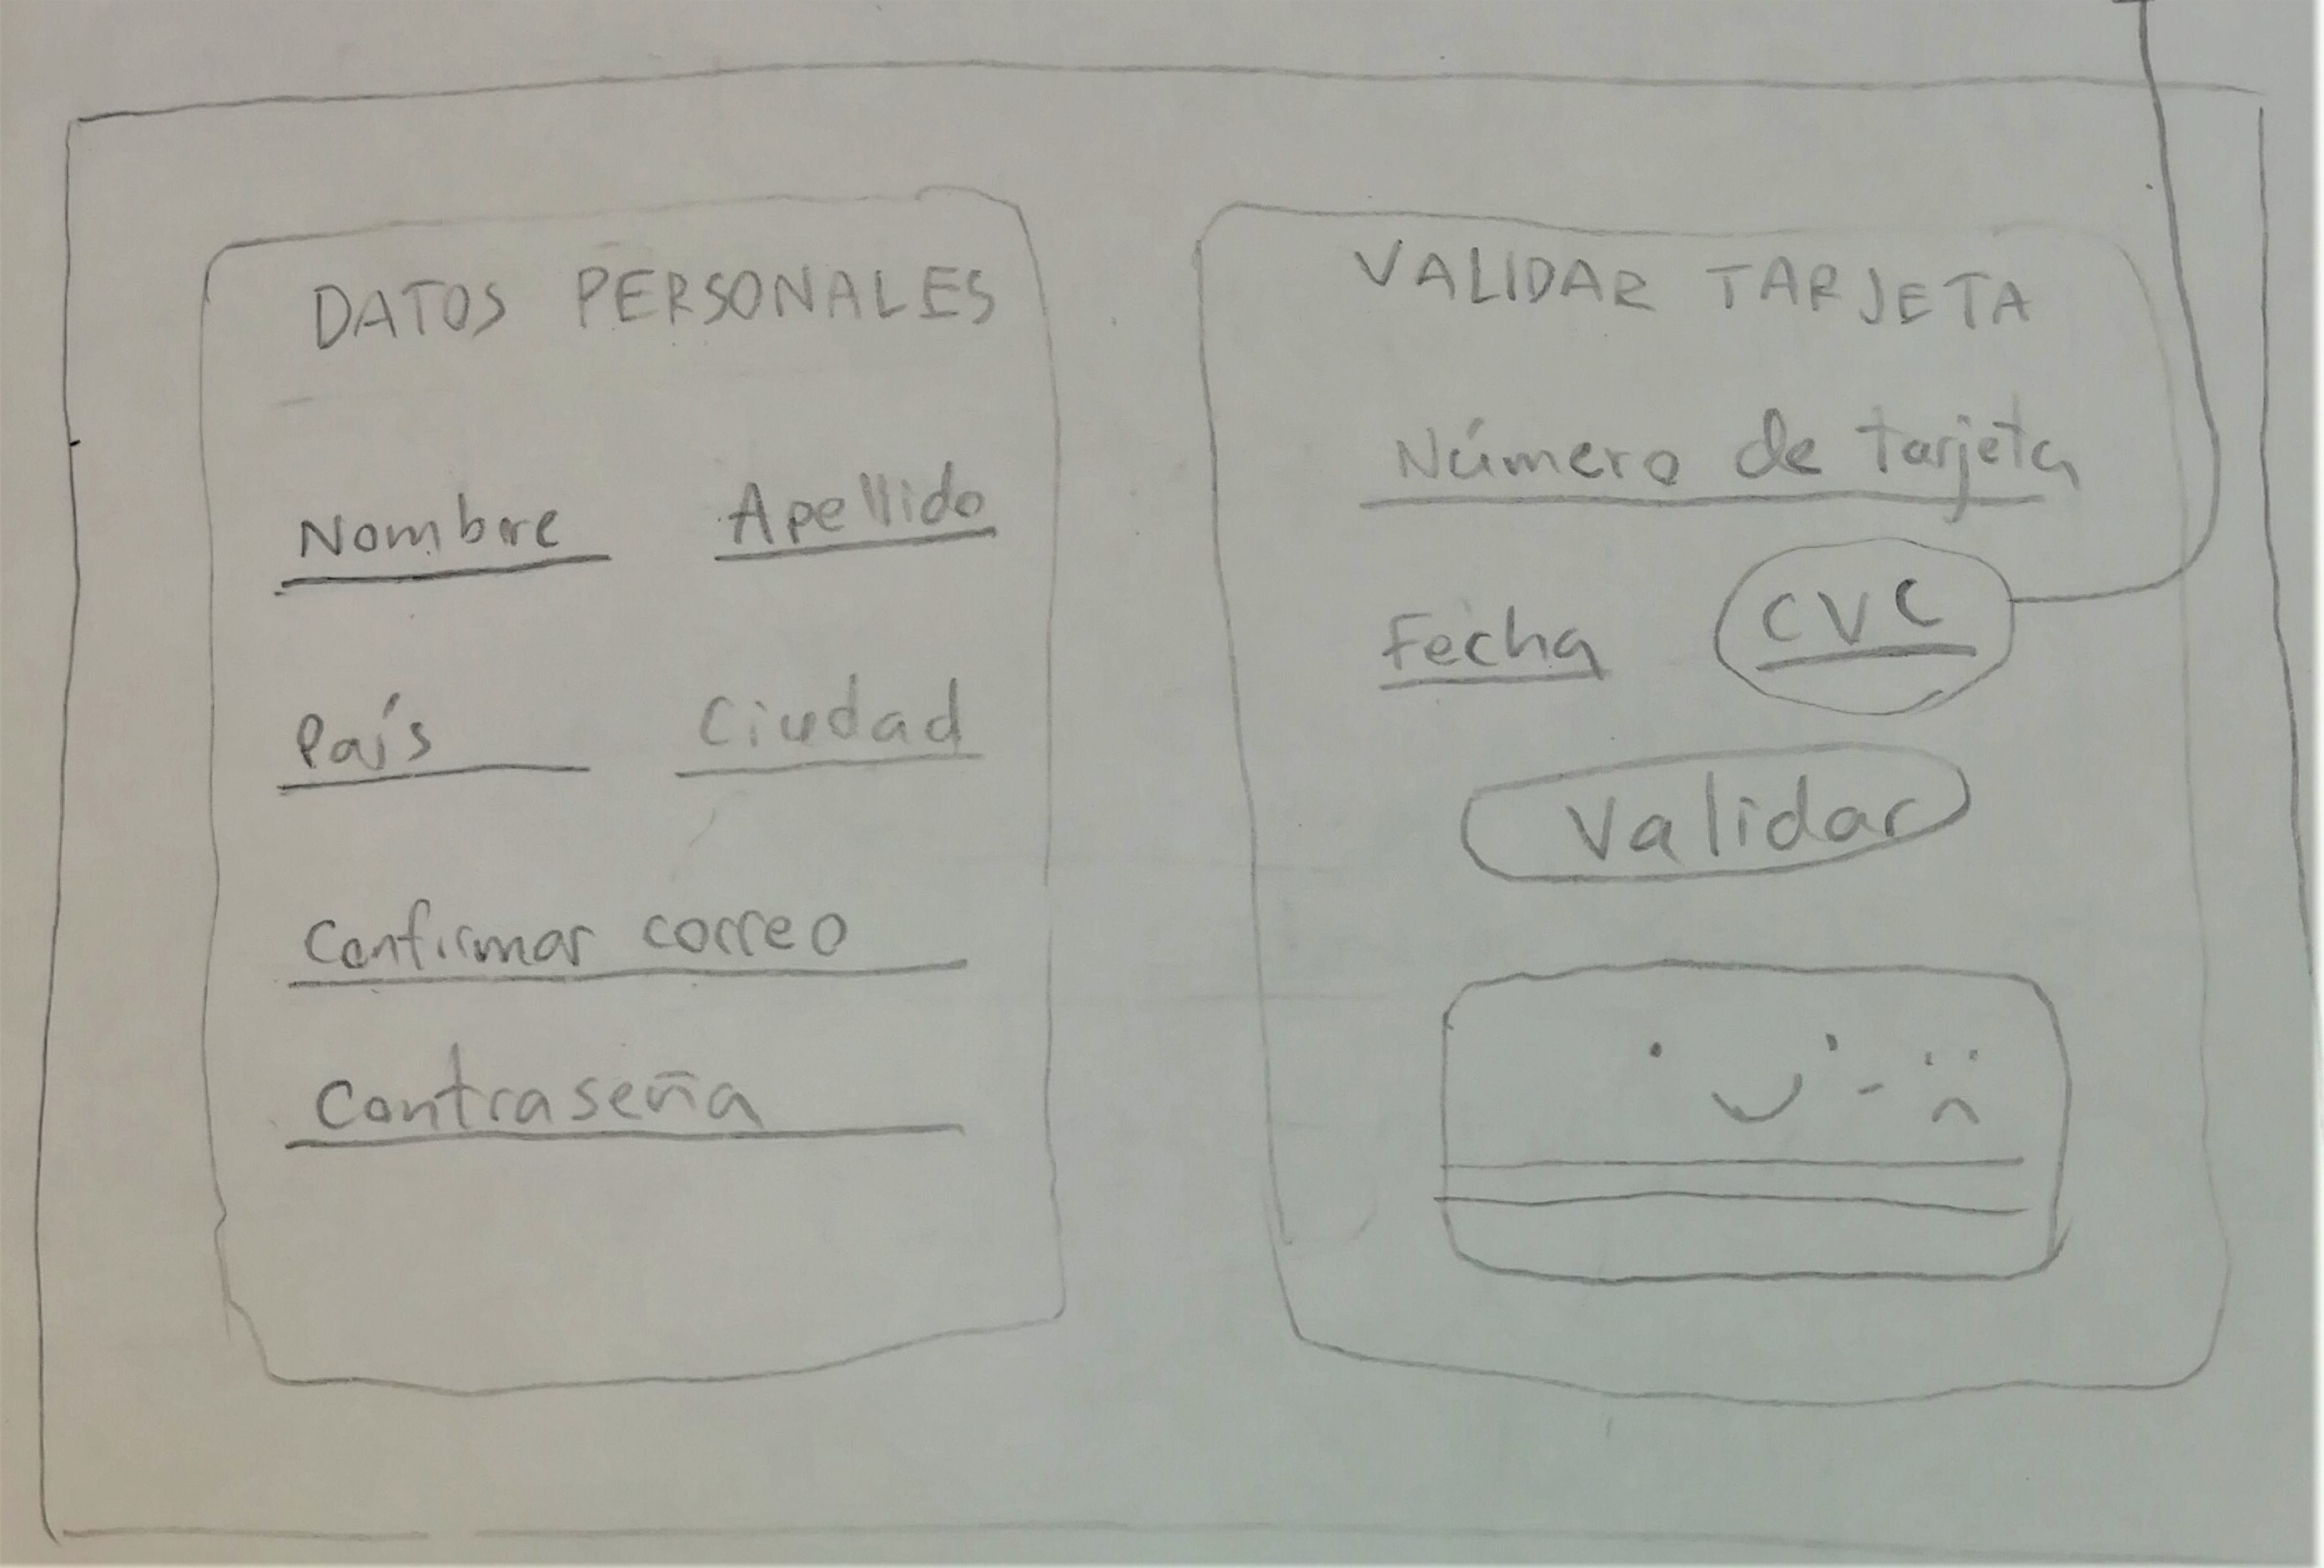 DATOS PERSONALES
Nombre Apellido
País Ciudad
Confirmar correo
Contraseña
VALIDAR TARJETA
Número de tarjeta
Fecha CVC
Validar